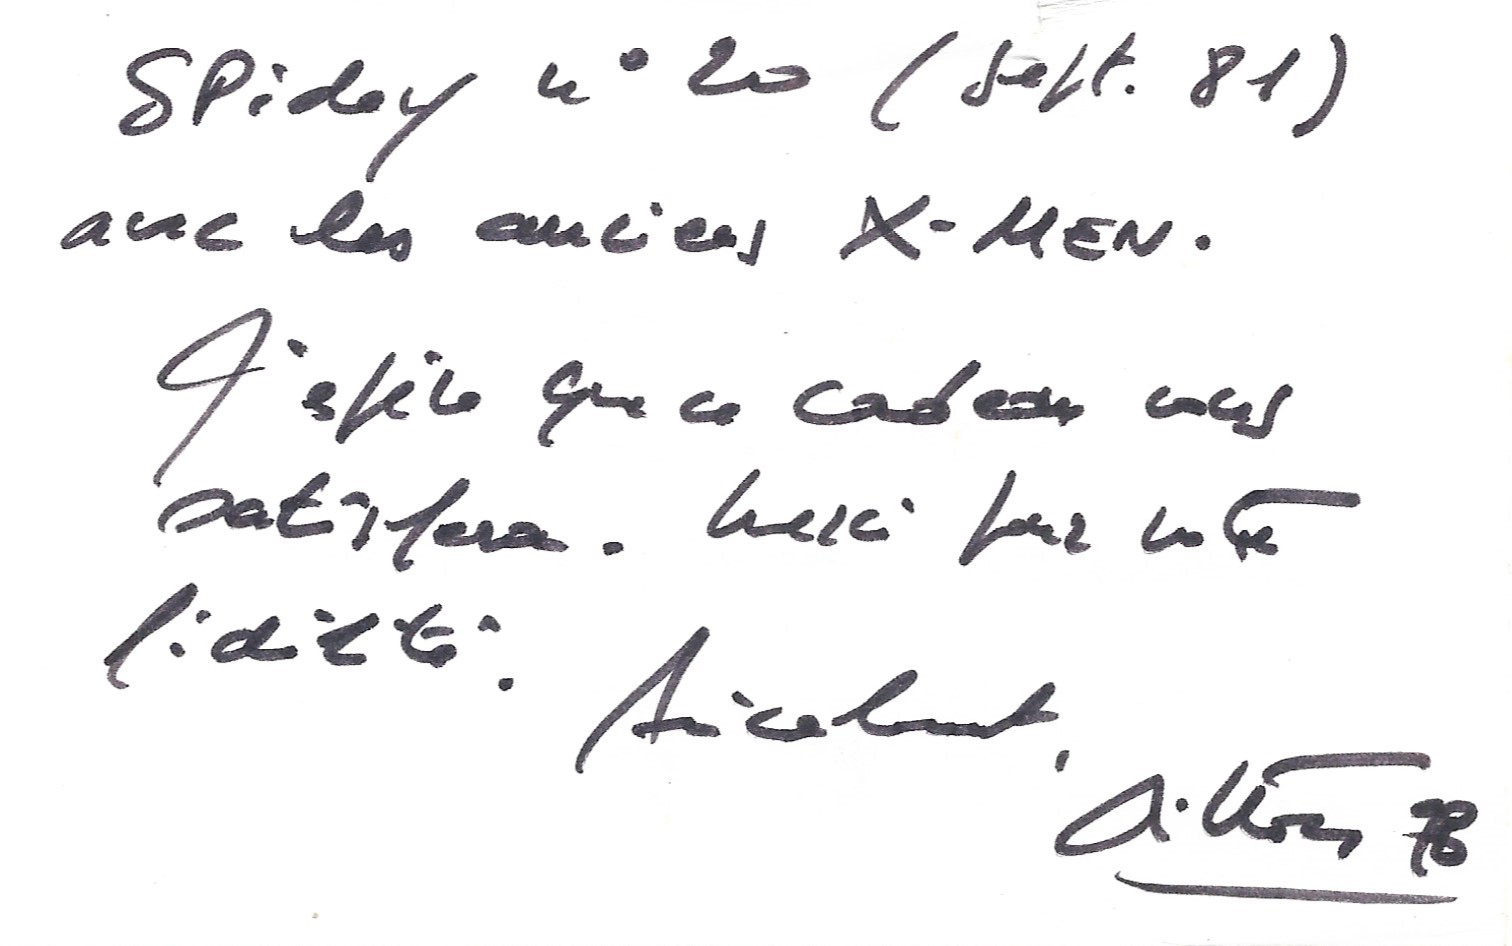 SPidey n° 20 (Sept. 81)
avec les anciens X-MEN.
J'espère que ce cadeau vous
satisfera. Merci pour votre
fidélité. Amicalement,